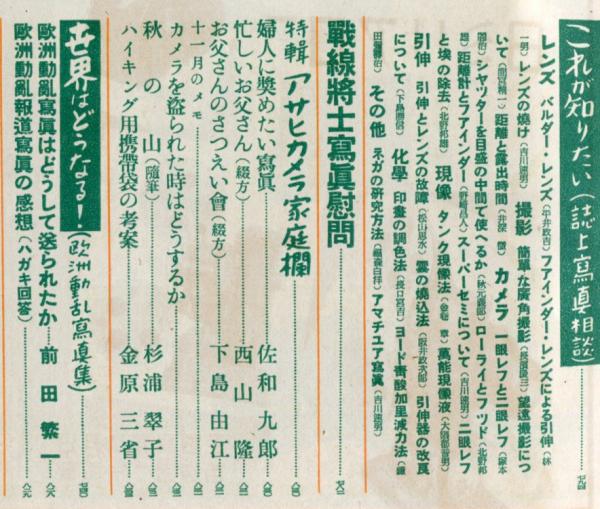 これが知りたい(誌上寫真相談)
レンズ バルダー・レンズ(平井政吉) フアインダー・レンズによる引伸(林
一男) レンズの燒け(吉川速男) 撮影 簡單な廣角撮影(長濱慶三) 望遠撮影につ
いて(間宮精一) 距離と露出時間 カメラ 一眼レフと二眼レフ
シヤツターを目盛の中間で使へるか ローライとフツド(北野邦
雄) 距離計とフアインダー スーパーセミについて(吉川速男) 二眼レフ
と埃の除去(北野邦雄) 現像 タンク現像法 萬能現像液
引伸 引伸とレンズの故障(松山思水) 雲の燒込法 引伸器の改良
について(下島勝信) 化學 印畫の調色法(長口宮吉) ヨード靑酸加里減力法
その他 ネガの硏究方法(福森白洋) アマチユア寫真(吉川速男)
戰線將士寫眞慰問
特輯 アサヒカメラ家庭欄
婦人に奬めたい寫眞 佐和九郎
忙しいお父さん(綴方) 西山隆
お父さんのさつえい會(綴方) 下島由江
十一月のメモ
カメラを盜られた時はどうするか
秋の山(隨筆) 杉浦翠子
ハイキング用携帶袋の考案 金原三省
世界はどうなる!(欧洲動乱寫真集)
歐洲動亂寫眞はどうして送られたか 前田繁一
歐洲動亂報道寫眞の感想(ハガキ回答)